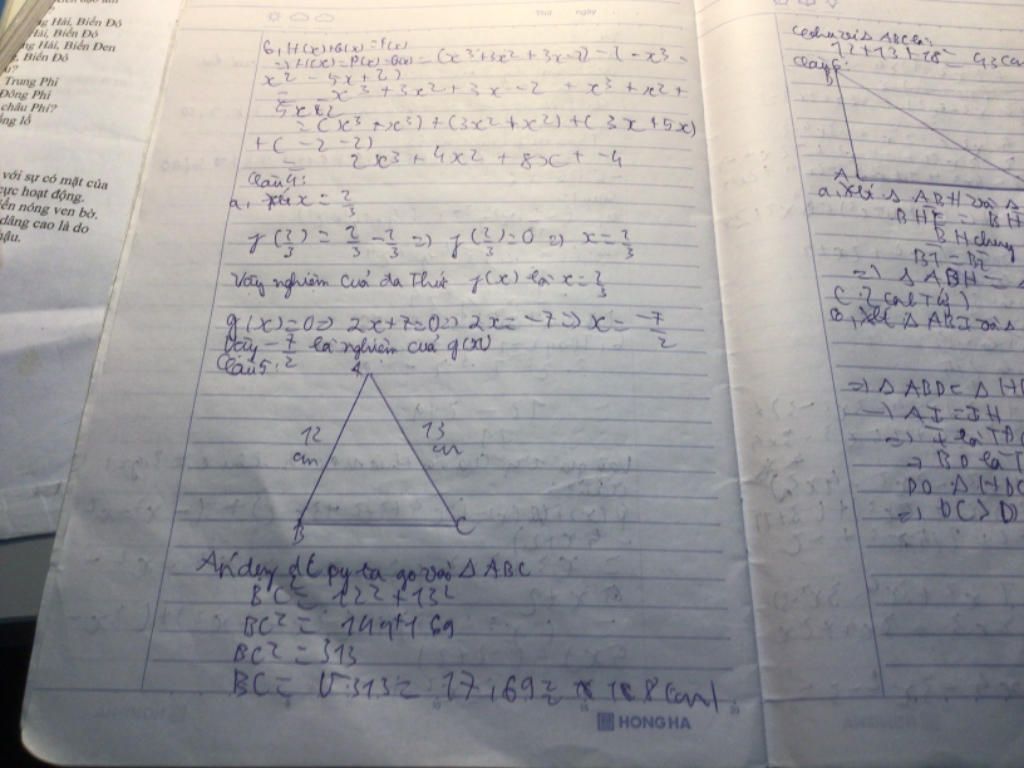 g Hải, Biển Đỏ
Hải, Biển Đỏ
ng Hải, Biển Đen
, Biển Đỏ
Trung Phi
Đông Phi
châu Phi?
ng lồ
với sự có mặt của
cực hoạt động.
ển nóng ven bờ.
dâng cao là do
ậu.
Thứ ngày
b, H(x)+G(x) = P(x)
=> H(x) = P(x) - G(x) = (x³+3x²+3x-2) - (-x³-
x² - 5x + 2)
= x³ + 3x² + 3x - 2 + x³ + x² +
= (x³ + x³) + (3x² + x²) + (3x + 5x)
+ (-2 -2)
= 2x³ + 4x² + 8x + -4
Câu 4:
a, x = 2/3
f(2/3) = 2/3 - 2/3 => f(2/3) = 0 => x = 2/3
Vậy nghiệm của đa thức f(x) là x = 2/3
g(x)=0 => 2x+7=0 => 2x = -7 => x = -7/2
Vậy -7/2 là nghiệm của g(x)
Câu 5:
A
12 cm
13 cm
B C
Áp dụng đl py ta go vào Δ ABC
BC² = 12² + 13²
BC² = 144+169
BC² = 313
BC = √313 = 17,69 = 18 (cm)
HONG HA
12+13+18= 43 cm
Câu 6:
B
A
a, Xét Δ ABH và Δ
BH chung
=> Δ ABH = Δ
b, Xét Δ ABI và Δ
=> AI = IH
=> I là
=> BD là T
=> DC > D